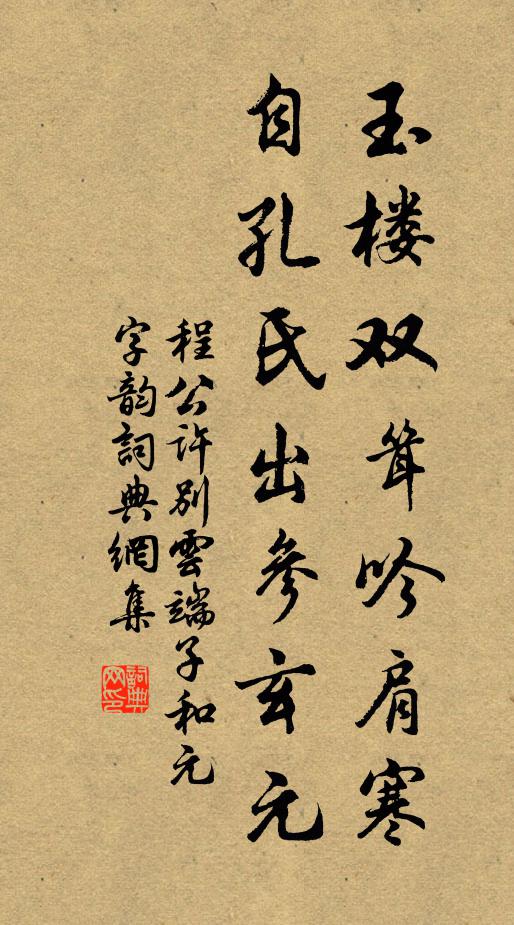 玉楼双耸吟肩寒
自孔氏出参玄元
程公许别雲端子和元
字韵詞典網集
詞典
网印